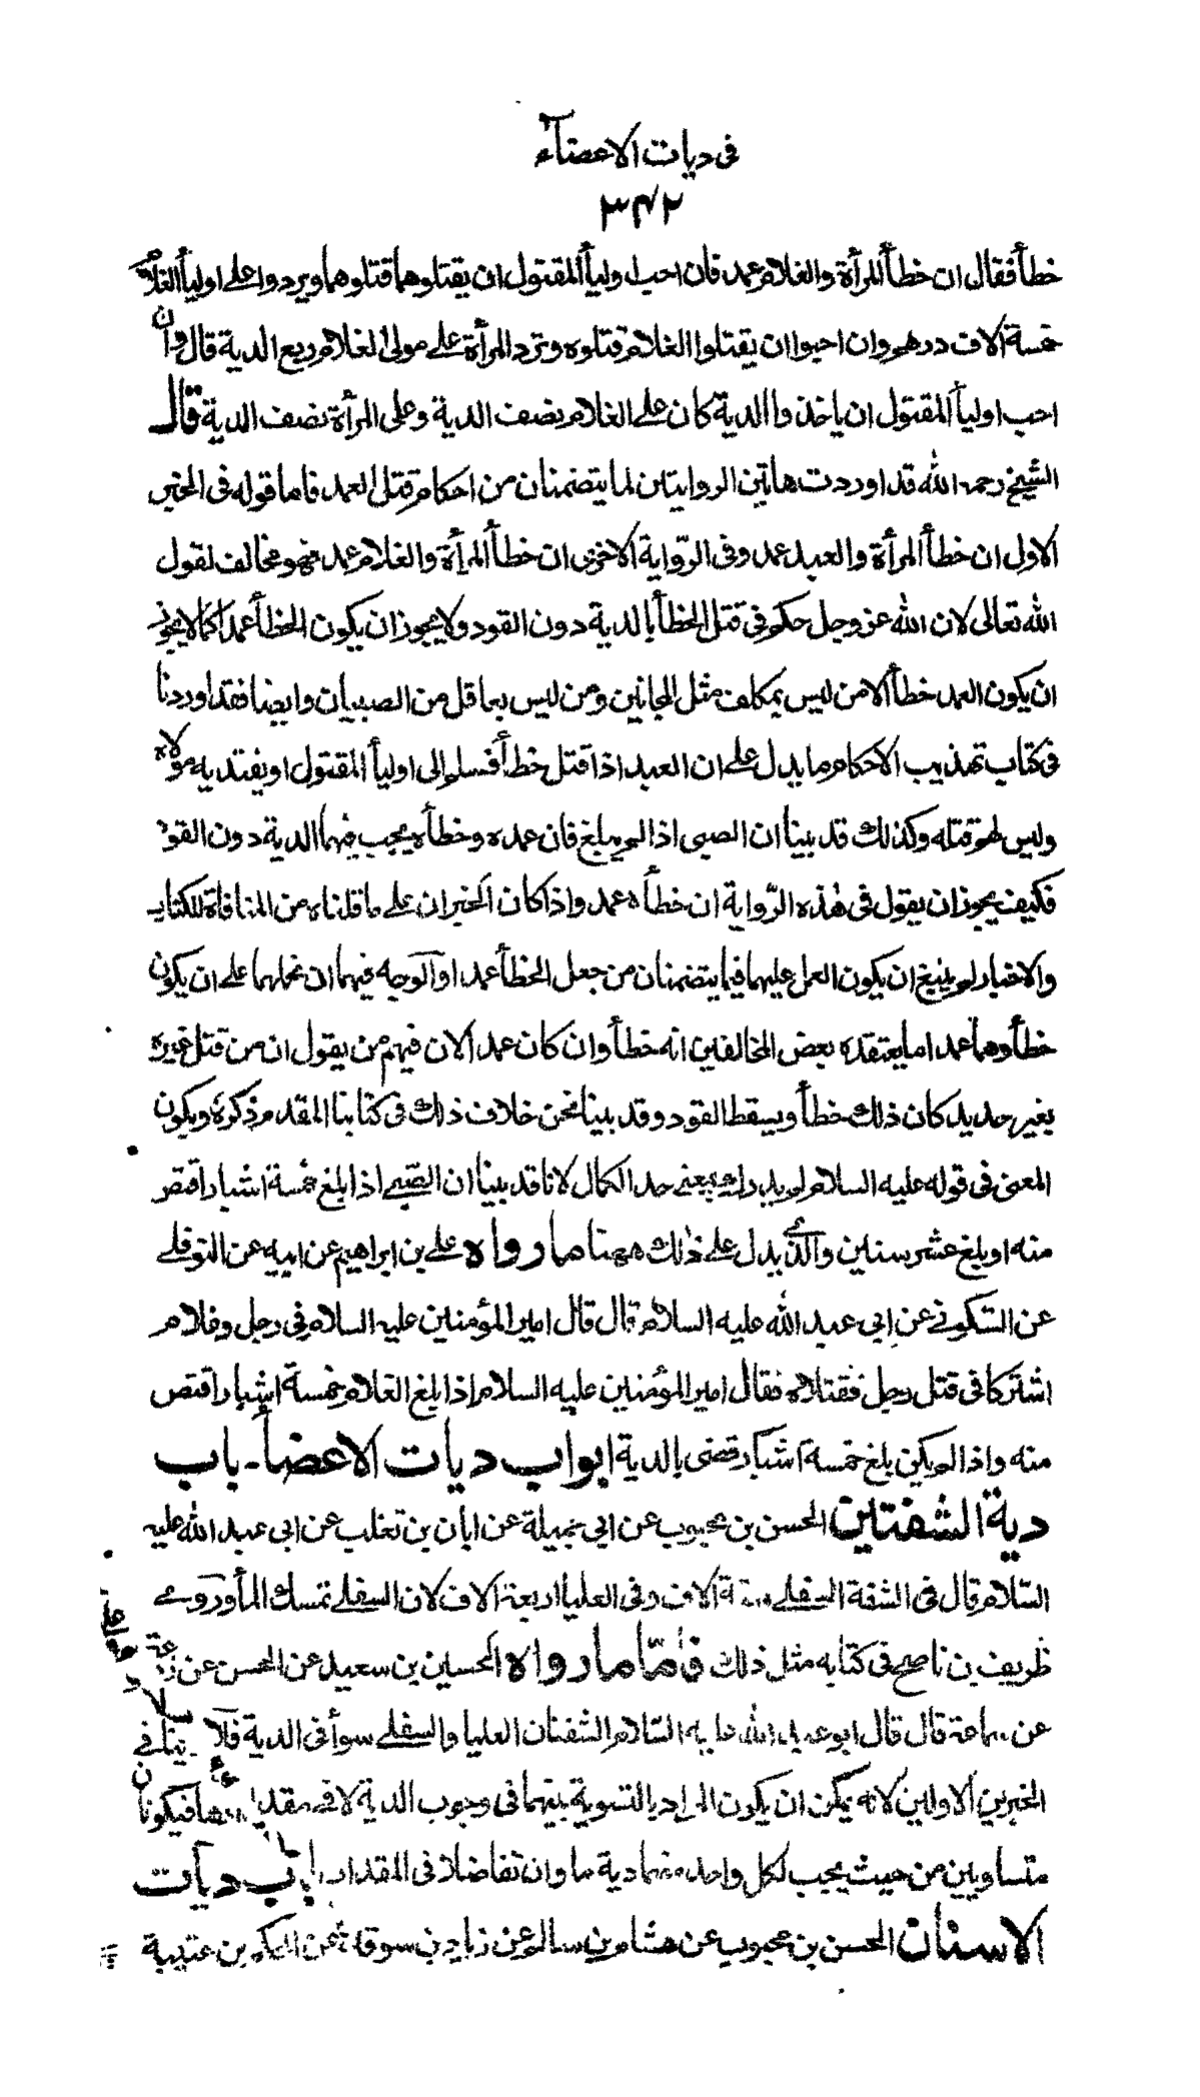 فى ديات الاعضآء
٣٤٢
خطأ فقال ان خطأ المرأة والغلام عمد فان احب اوليأ المقتول ان يقتلوهما قتلوهما ويردوا على اوليأ الغلام
خمسة الاف درهم وان احبوا ان يقتلوا الغلام قتلوه وترد المرأة على مولى الغلام ربع الدية قال وان
احب اوليأ المقتول ان ياخذوا الدية كان على الغلام نصف الدية وعلى المرأة نصف الدية قال
الشيخ رحمه الله قد اوردت هاتين الروايتين لما يتضمنان من احكام قتل العمد فاما قوله فى الخبر
الاول ان خطأ المرأة والعبد عمد وفى الرّواية الاخرى ان خطأ المرأة والغلام عمد فهو مخالف لقول
الله تعالى لان الله عز وجل حكم فى قتل الخطأ بالدية دون القود ولا يجوز ان يكون الخطأ عمدا كما لا يجوز
ان يكون العمد خطأ الا من ليس بمكلف مثل المجانين ومن ليس بعاقل من الصبيان وايضا فقد اوردنا
فى كتاب تهذيب الاحكام ما يدل على ان العبد اذا قتل خطأ فسلم الى اوليأ المقتول او يفتديه مولاه
وليس لهم قتله وكذلك قد بينا ان الصبى اذا لم يبلغ فان عمده وخطأه يجب فيهما الدية دون القود
فكيف يجوز ان يقول فى هٰذه الرّواية ان خطأه عمد واذا كان الخبران على ما قلناه من المنافاة للكتاب
والاخبار لم ينبغ ان يكون العمل عليهما فيما يتضمنان من جعل الخطأ عمدا والوجه فيهما ان نحملهما على ان يكون
خطأ وهما عمدا ما يعتقده بعض المخالفين انه خطأ وان كان عمدا لان فيهم من يقول ان من قتل غيره
بغير حديد كان ذلك خطأ ويسقط القود وقد بينا نحن خلاف ذلك فى كتابنا المقدم ذكره ويكون
المعنى فى قوله عليه السلام لم يدرك يعنى حد الكمال لانا قد بينا ان الصّبى اذا بلغ خمسة اشبار اقتص
منه او بلغ عشر سنين والّذى يدل على ذٰلك ههنا ما رواه على بن ابراهيم عن ابيه عن النوفلى
عن السّكونى عن ابى عبد الله عليه السلام قال قال امير المؤمنين عليه السلام فى رجل وغلام
اشتركا فى قتل رجل فقتلاه فقال امير المؤمنين عليه السلام اذا بلغ الغلام خمسة اشبار اقتص
منه واذا لم يكن بلغ خمسة اشبار قضى بالدية ابواب ديات الاعضأ ـ باب
دية الشفتين الحسن بن محبوب عن ابى جميلة عن ابان بن تغلب عن ابى عبد الله عليه
السّلام قال فى الشفة السفلى ستة الاف وفى العليا اربعة الاف لان السفلى تمسك المأ وروى
ظريف بن ناصح فى كتابه مثل ذلك فأمّا ما رواه الحسين بن سعيد عن الحسن عن زرعة
عن سماعة قال قال ابو عبد الله عليه السّلام الشفتان العليا والسفلى سوأ فى الدية فلا ينافى
الخبرين الاولين لانه يمكن ان يكون المراد بالتسوية بينهما فى وجوب الدية لا فى مقدارهما فيكونان
متساويين من حيث يجب لكل واحد منهما دية ما وان تفاضلا فى المقدار باب ديات
الاسنان الحسن بن محبوب عن هشام بن سالم عن زياد بن سوقة عن الحكم بن عتيبة